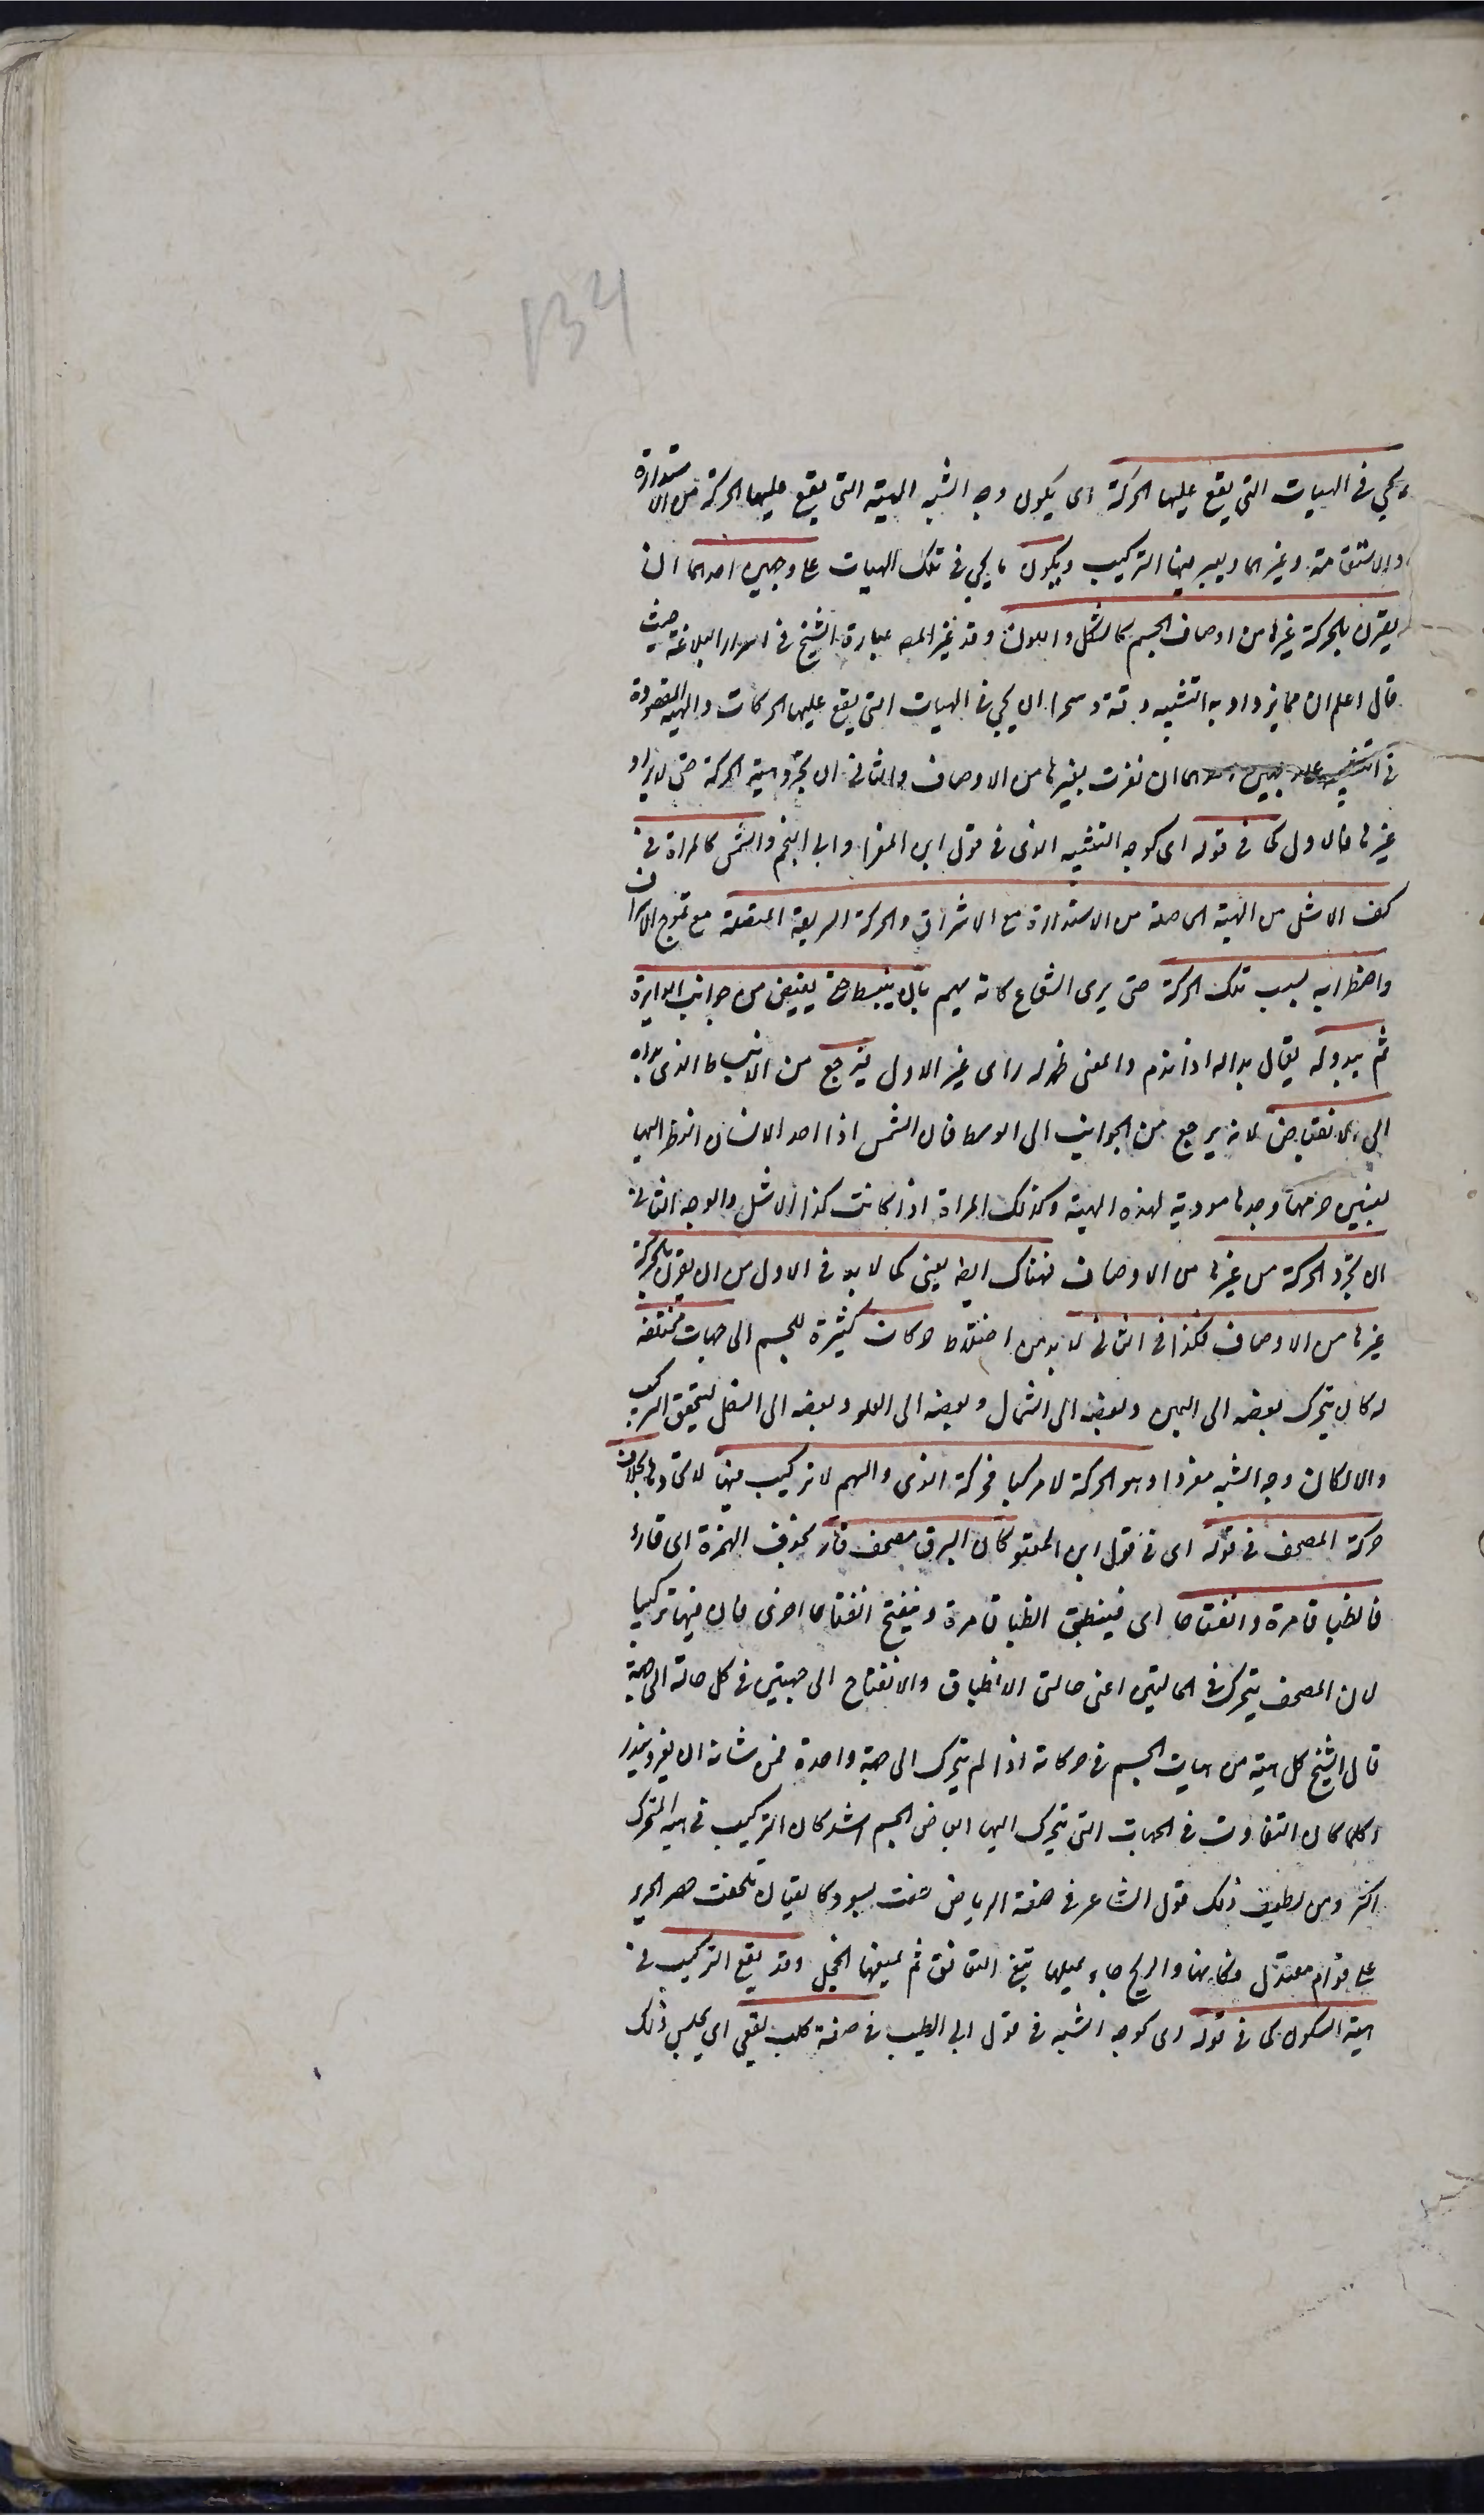 134
يجى فى الهيات التى يقع عليها الحركة اى يكون وجه الشبه الهيئة التى يقع عليها الحركة من الاستدارة
والاستقامة وغيرهما ويعتبر فيها التركيب ويكون ما يجى فى تلك الهيات على وجهين احدهما ان
يقرن بالحركة غيرها من اوصاف الجسم كالشكل واللون وقد غير المص عبارة الشيخ فى اسرار البلاغة حيث
قال اعلم ان مما يزداد به التشبيه دقة وسحرا ان يجى فى الهيات التى يقع عليها الحركات والهيئة المقصودة
فى التشبيه على وجهين احدهما ان تقترن بغيرها من الاوصاف والثانى ان تجرد هيئة الحركة حتى لا يراد
غيرها فالاول كما فى قوله اى كوجه التشبيه الذى فى قول ابن المعتز او ابى النجم والشمس كالمراة فى
كف الاشل من الهيئة الحاصلة من الاستدارة مع الاشراق والحركة السريعة المتصلة مع تموج الاشراق
واضطرابه بسبب تلك الحركة حتى يرى الشعاع كانه يهم بان ينبسط حتى يفيض من جوانب الدايرة
ثم يبدو له يقال بدا له اذا ندم والمعنى ظهر له راى غير الاول فيرجع من الانبساط الذى بدا له
الى الانقباض لانه يرجع من الجوانب الى الوسط فان الشمس اذا احد الانسان النظر اليها
ليتبين جرمها وجدها مودية لهذه الهيئة وكذلك المراة اذا كانت كذا الاشل والوجه الثانى
ان تجرد الحركة من غيرها من الاوصاف فهناك ايضا يعنى كما لا بد فى الاول من ان يقرن بالحركة
غيرها من الاوصاف فكذا فى الثانى لا بد من اختلاط حركات كثيرة للجسم الى جهات مختلفة
له كان يتحرك بعضه الى اليمين وبعضه الى الشمال وبعضه الى العلو وبعضه الى السفل ليتحقق التركيب
والا لكان وجه الشبه مفردا وهو الحركة لا مركبا فحركة الرحى والسهم لا تركيب فيها لاتحادها بخلاف
حركة المصحف فى قوله اى فى قول ابن المعتز وكان البرق مصحف قار بحذف الهمزة اى قارئ
فانطباقا مرة وانفتاحا اى فينطبق انطباقا مرة وينفتح انفتاحا اخرى فان فيها تركيبا
لان المصحف يتحرك فى الحالتين اعنى حالتى الانطباق والانفتاح الى جهتين فى كل حالة الى جهة
قال الشيخ كل هيئة من هيات الجسم فى حركاته اذا لم يتحرك الى جهة واحدة فمن شانه ان يعز ويندر
وكلما كان التفاوت فى الجهات التى يتحرك اليها ابعاض الجسم اشد كان التركيب فى هيئة المتحرك
اكثر ومن لطيف ذلك قول الشاعر فى صفة الرياض حفت بسرو كالقيان تلحفت خضر الحرير
على قوام معتدل فكانها والريح جاء يميلها تبغى التعانق ثم يمنعها الخجل وقد يقع التركيب فى
هيئة السكون كما فى قوله اى كوجه الشبه فى قول ابى الطيب فى صفة كلب يقعى اى يجلس ذلك